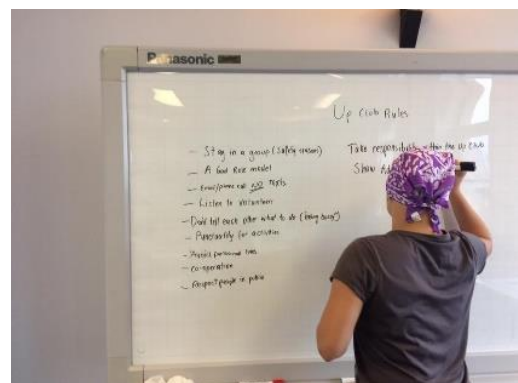 Panasonic
Up Club Rules
- Stay in a group (safety reason)
- A Good Role model
- Email/phone call NO Texts
- Listen to Volunteers
- Don't tell each other what to do (being bossy)
- Punctuality for activities
- personal
- co-operation
- Respect people in public
Take responsibility within the Up Club
Show